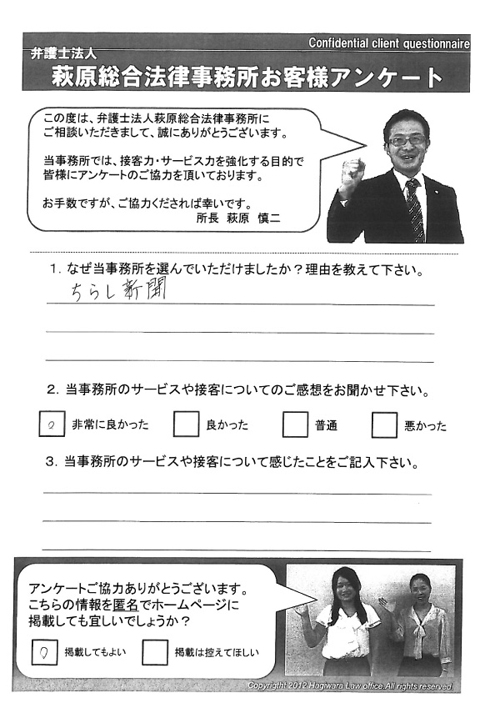 Confidential client questionnaire
弁護士法人
萩原総合法律事務所お客様アンケート
この度は、弁護士法人萩原総合法律事務所に
ご相談いただきまして、誠にありがとうございます。
当事務所では、接客力・サービス力を強化する目的で
皆様にアンケートのご協力を頂いております。
お手数ですが、ご協力くだされば幸いです。
所長 萩原 慎二
1. なぜ当事務所を選んでいただけましたか?理由を教えて下さい。
ちらし新聞
2. 当事務所のサービスや接客についてのご感想をお聞かせ下さい。
○ 非常に良かった 良かった 普通 悪かった
3. 当事務所のサービスや接客について感じたことをご記入下さい。
アンケートご協力ありがとうございます。
こちらの情報を匿名でホームページに
掲載しても宜しいでしょうか?
○ 掲載してもよい 掲載は控えてほしい
Copyright 2012 Hagiwara Law office.All rights reserved